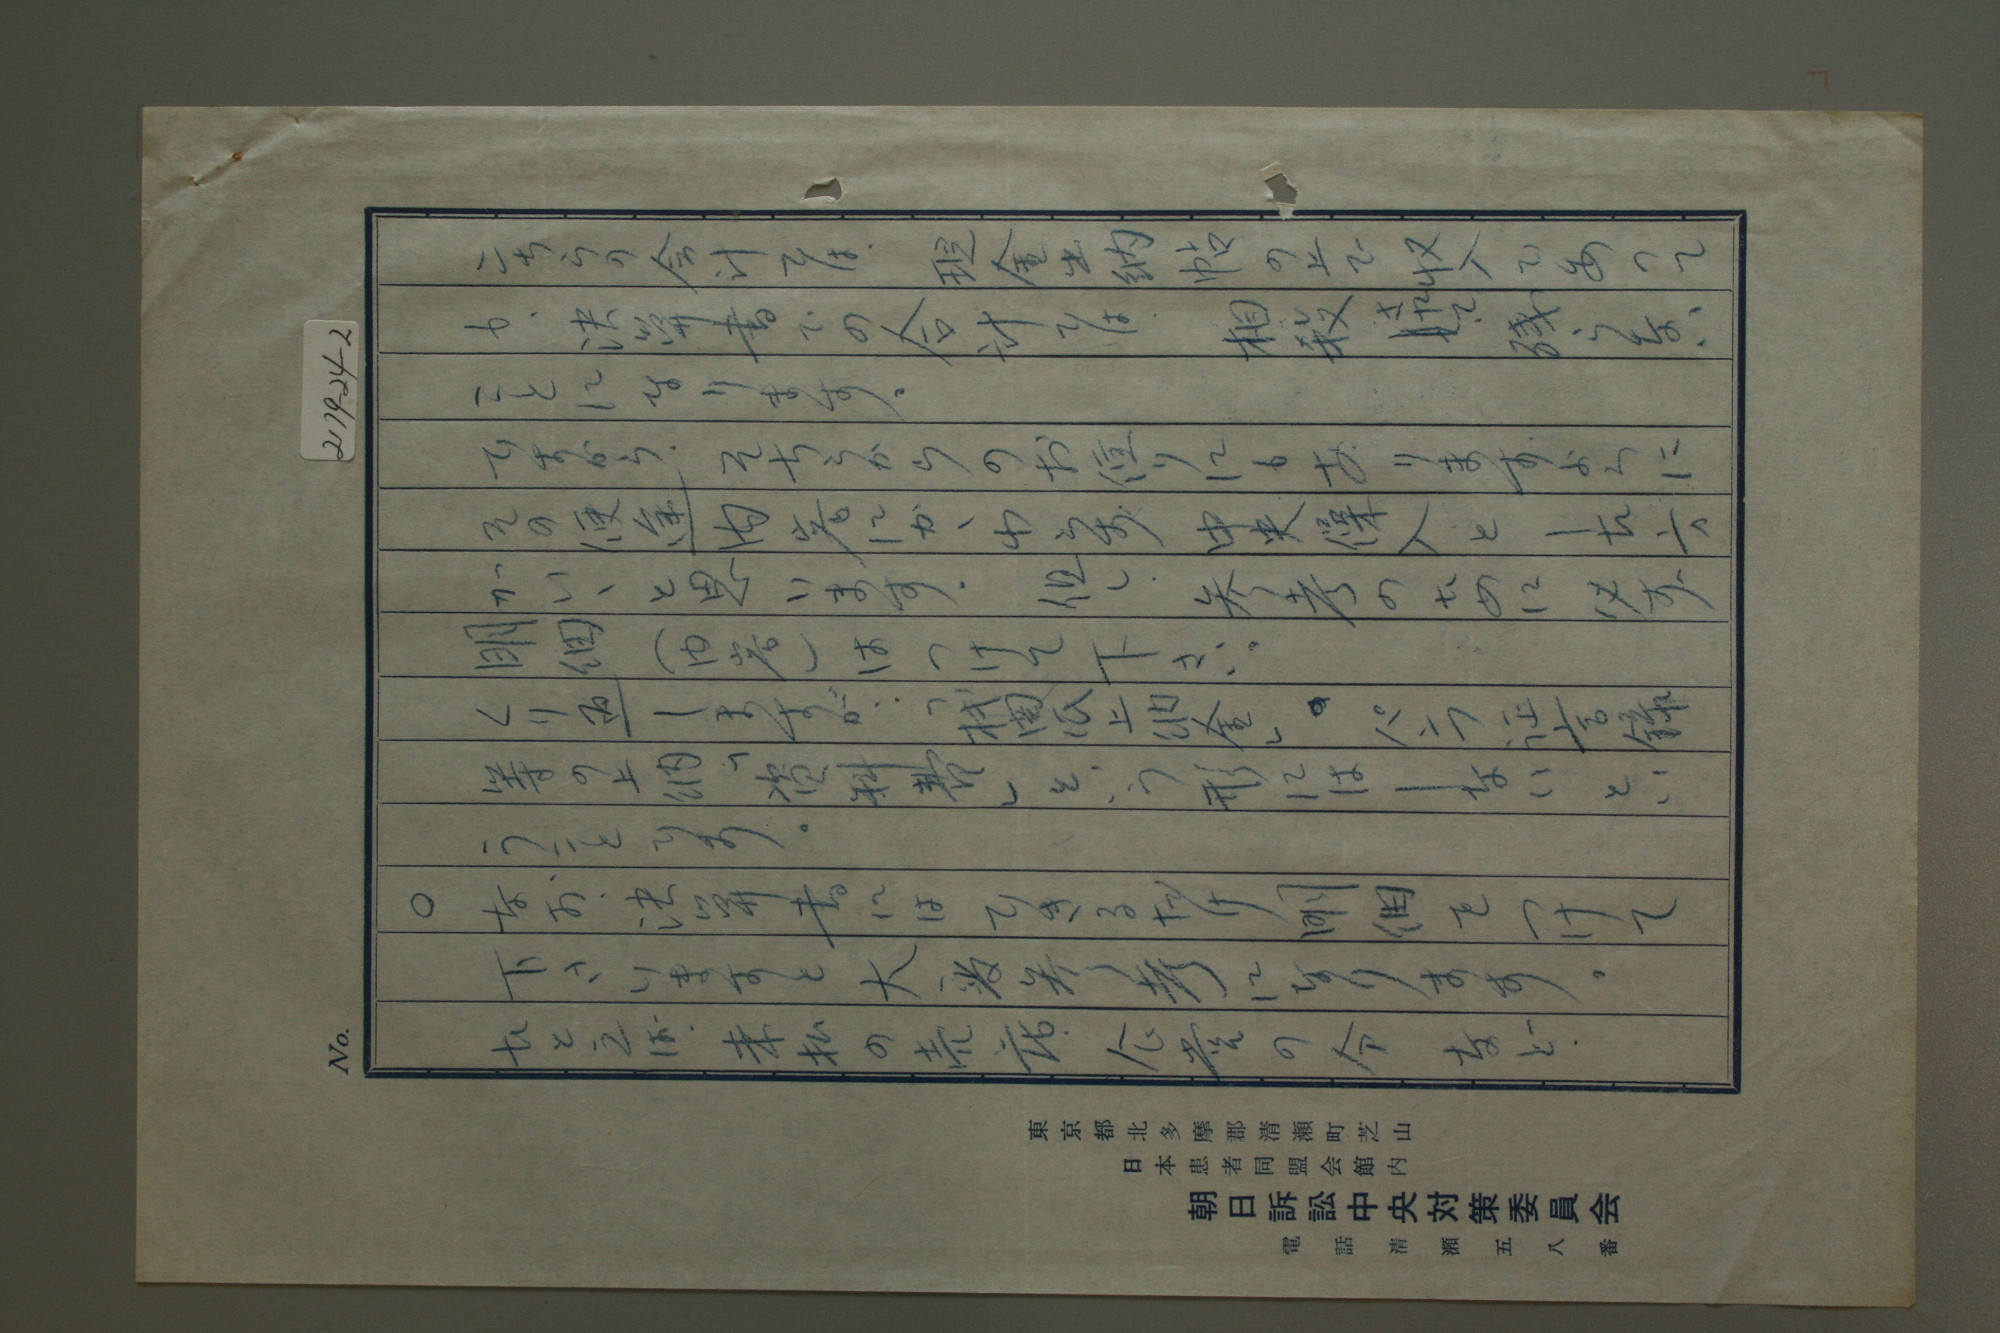 2179-24-2
No.
こちらの会計では、現金出納帖の上で収入であって
も、決算書での合計では、相殺されて残らない
ことになります。
ですから、そちらからのお便りにもありますように
その使途内容にかゝわらず 中央 人とした方
がいいと思います。但し、参考のために必ず
明細（内容）はつけて下さい。
くり返しますが、「機関紙上納金」 パンフ 証言録
等の上納「資料費」という形にはしないとい
うことです。
○ なお、決算書にはできるだけ明細をつけて
下さいますと大変参考になります。
たとえば、未払の 会 の など、
東京都北多摩郡清瀬町芝山
日本患者同盟会館内
朝日訴訟中央対策委員会
電話清瀬五八番